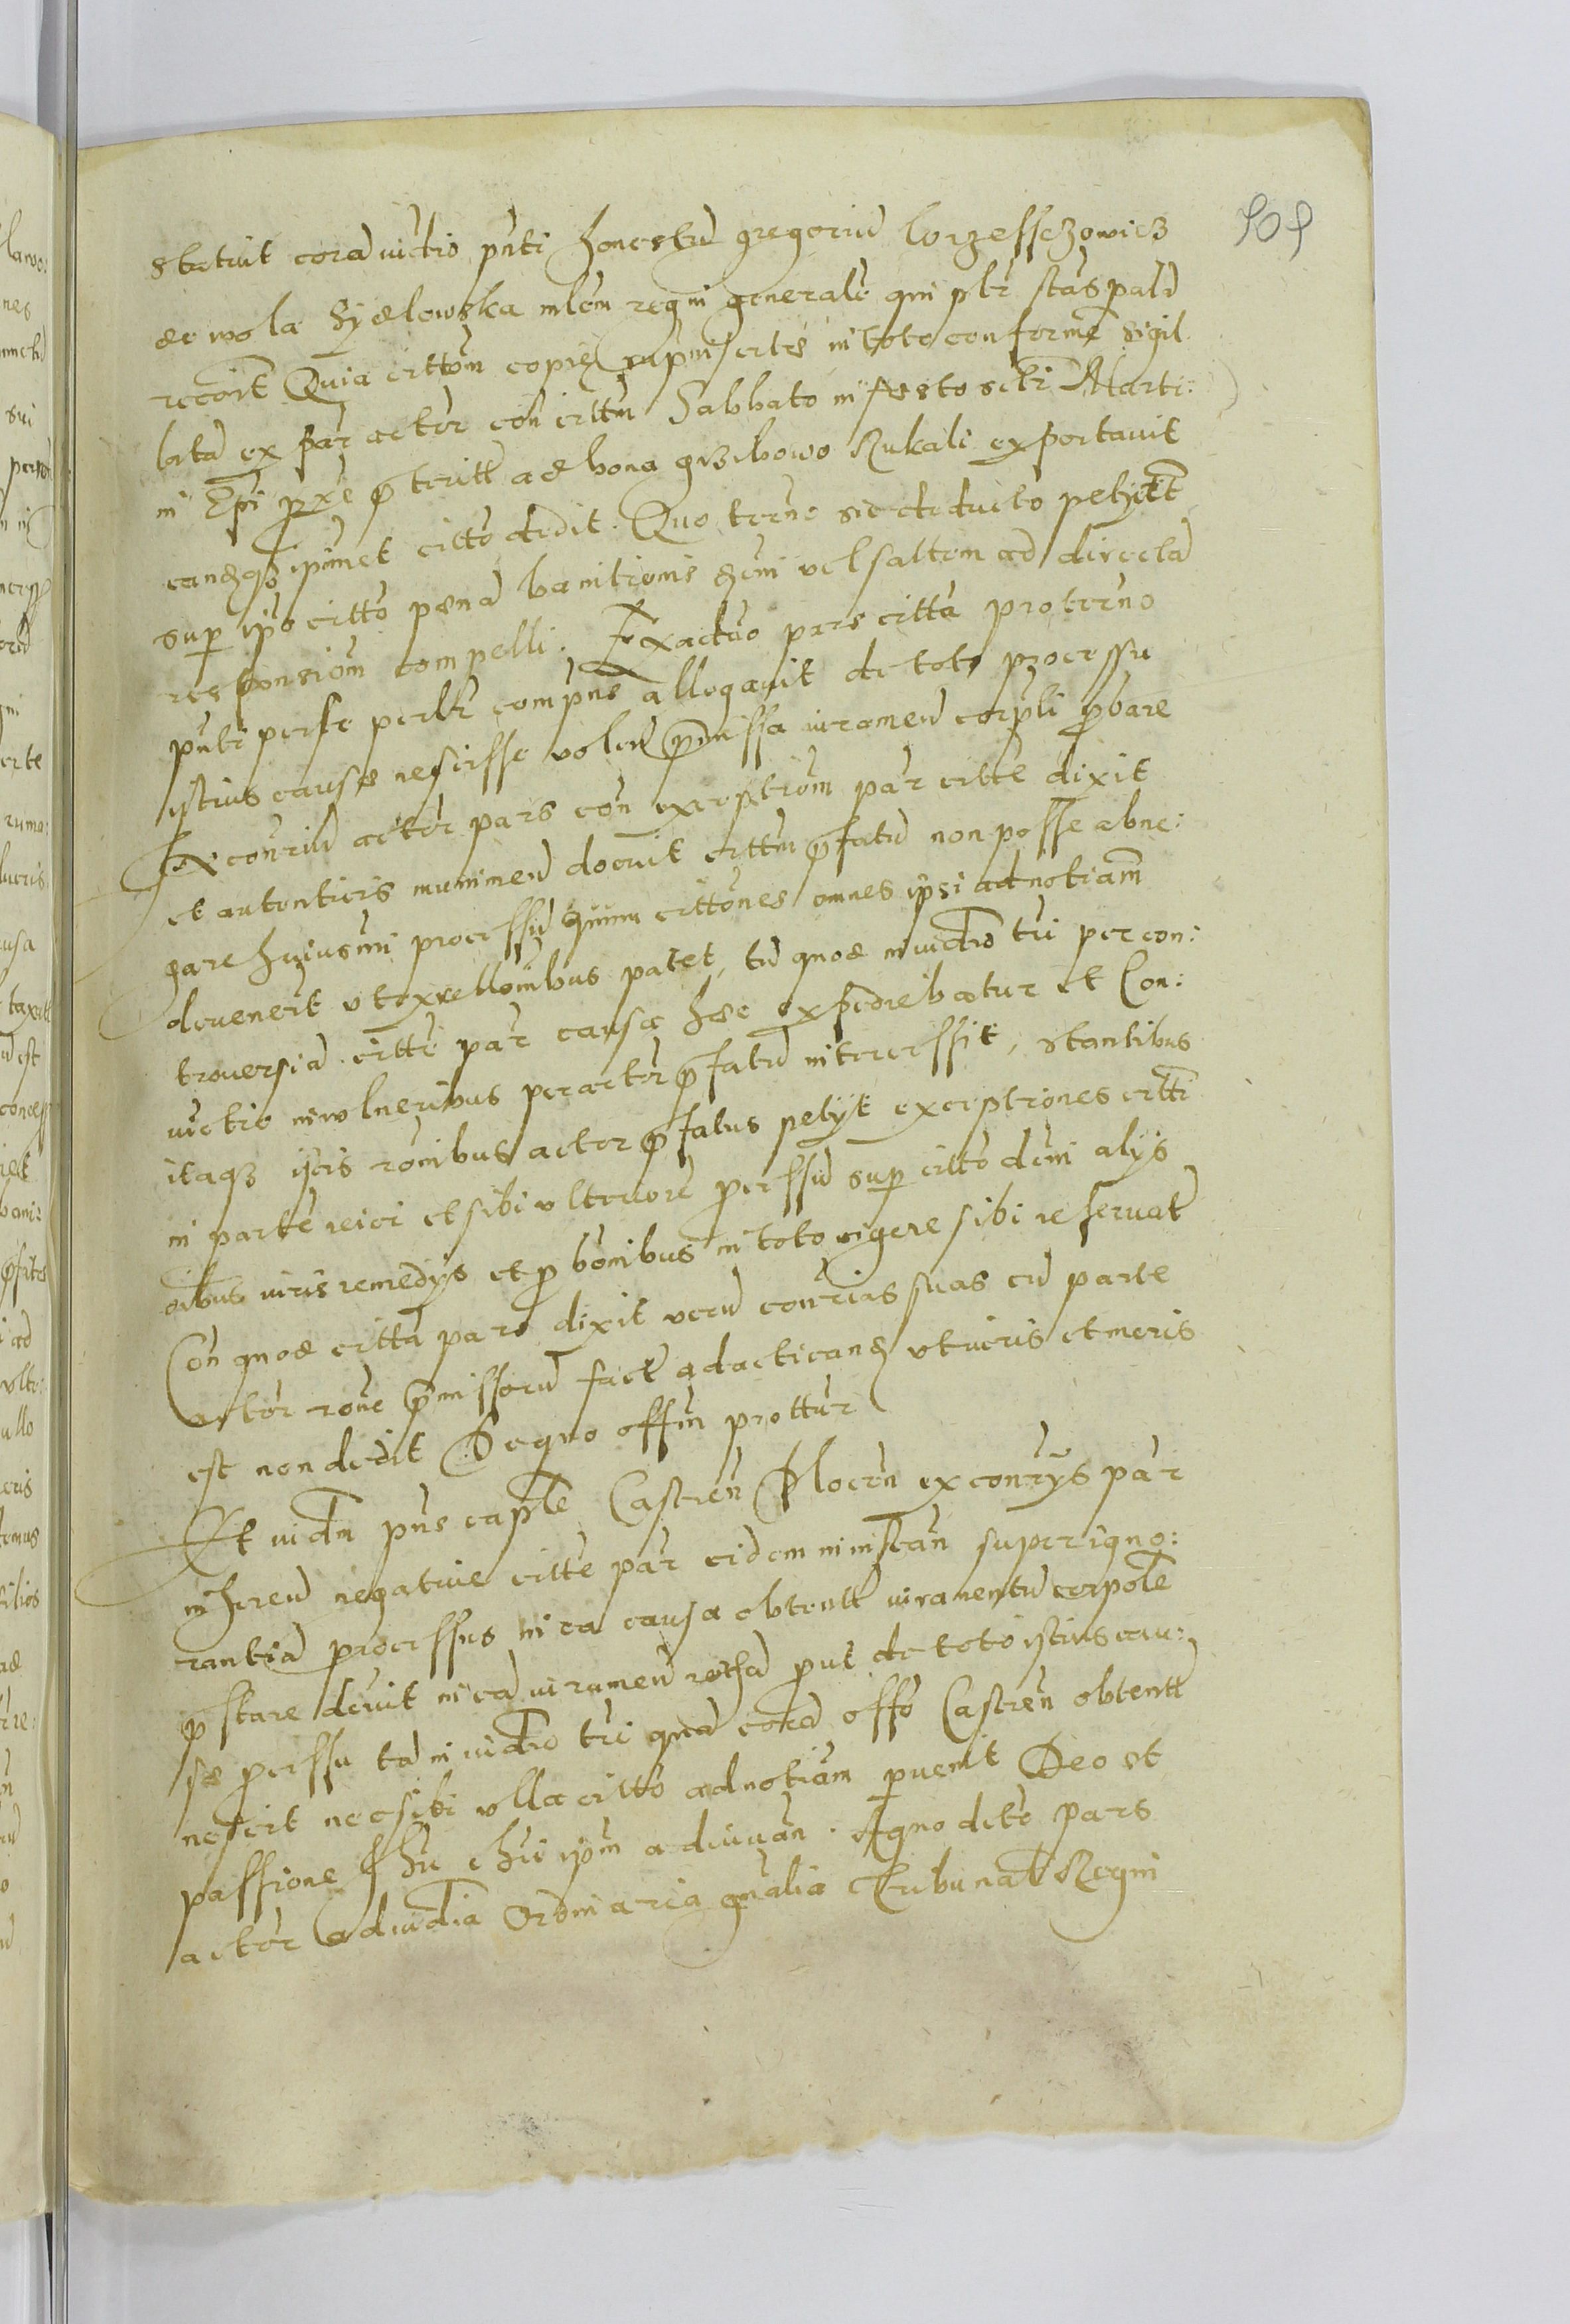 509
statuit corã iudicio pñti honestũ gregoriũ Lorzesszowicz
de wola Sydlowska mlem regni generalẽ qui pltr stãs palã
recoit Quia cittõm copiẽ supinsertẽ in toto conformẽ sigil
latã ex par actor cõn cittm Sabbato in festo scti Marti:
ni Epi pxe pteritt ad bona Grzibowo Rukali exportavit
eandqʒ ipimet citto dedit. Quo termo sic deducto petyit
sup ipo citto pœnã banitionis decni vel saltem ad directã
responsiõm compelli. Ex aduo pars citta pro termo
pñti per se pertr compñs allegavit de toto processu
istius causæ nescisse volẽn pmissa iuramen corpli pbare
Ex conriũ actor pars cõn exceptiõm par citte dixit
et autenticis munimen docuit cittm pfatũ non posse abne:
gare huiusmi processũ quum cittõnes omnes ipsi ad notiam
devenerũt ut ex rellonibus patet, tũ quod in iudicio tri per con:
troversiã citte par causa hæc expediebatur et Con:
victio in vulneribus per actor pfatũ intercessit, stantibus
itaqʒ istis rõnibus actor pfatus petyt exceptiones citti
in parte reici et sibi ulteriorẽ pcessũ sup citto decni alys
oibus iuris remedys et pbonibus in toto vigore sibi reservat
Cõn quod citta pars dixit verũ conrias suas cũ parte
actor rõne pmissorũ fact ad acticand ut iuris et moris
est non dedit De quo offm prottur
Et iudm pñs caple Castren Plocen ex conrys par
inheren negative citte par eidem in instan super igno:
rantiã processus in ea causa obtentt iuramentũ corpole
pstare decrevit in eã iuramen rothã put de toto istius cau:
sæ pcessu tã in iudicio tri quã corã offo Castren obtentt
nescit nec sibi ulla citto ad notiam pvenit Deo et
passione Jhu Chri ipm adiuvan. A quo dcto pars
actor ad iudia Ordinaria gnalia Tribunal Regni